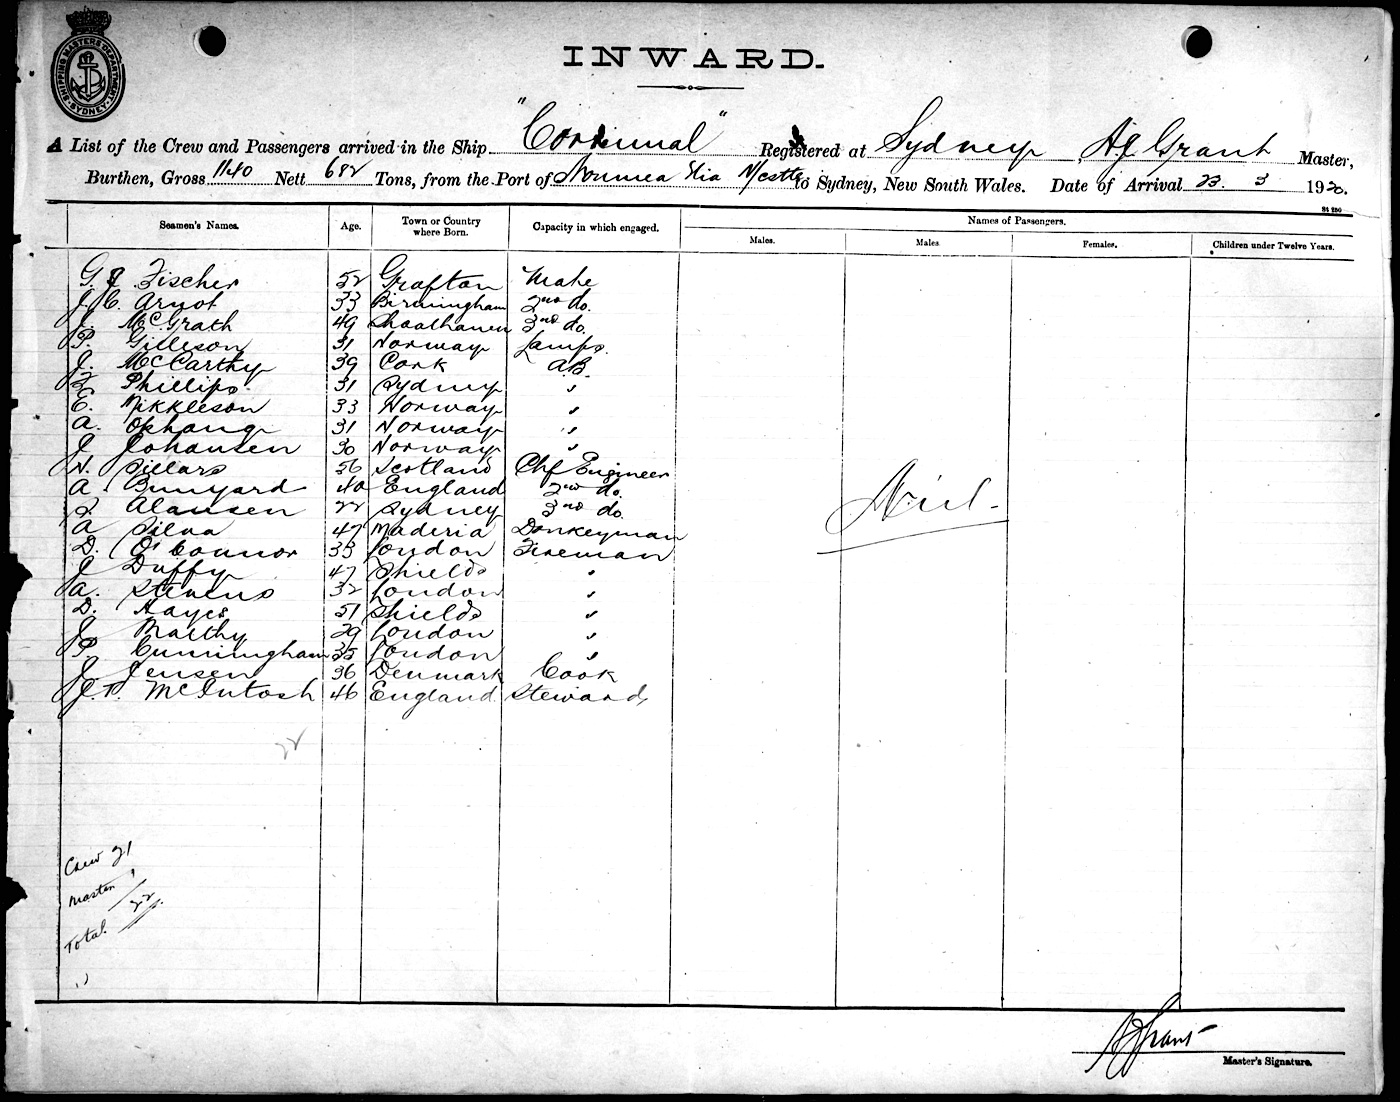 SHIPPING MASTERS DEPARTMENT SYDNEY
INWARD.
A List of the Crew and Passengers arrived in the Ship "Corrimal" Registered at Sydney, A.J. Grant Master,
Burthen, Gross 1140 Nett 682 Tons, from the Port of Noumea Via N/castle to Sydney, New South Wales. Date of Arrival 23. 3 1920.
Seamen's Names. Age. Town or Country where Born. Capacity in which engaged. Names of Passengers.
Males. Males. Females. Children under Twelve Years.
G. J Fischer 52 Grafton Mate
J. C. Arnot 33 Birmingham 2nd do.
J. McGrath 49 Shoalhaven 3rd do.
P. Gilleson 31 Norway Lamps.
J. McCarthy 39 Cork AB.
Phillips. 31 Sydney "
E. Nikkleson 33 Norway "
A. Ophang 31 Norway "
J Johansen 30 Norway "
N. Sillars 56 Scotland Chf Engineer
A. Bunyard 40 England 2nd do.
Alansen 22 Sydney 3rd do.
A Silva 47 Maderia Donkeyman
D. O'Connor 35 London Fireman
J Duffy 47 Shields "
A. Stevens 32 London "
D. Hayes 51 Shields "
J Marthy 29 London "
P. Cunningham 35 London "
J Jensen 36 Denmark Cook
McIntosh 46 England Steward,
Niel.
22
Crew 21
Master 1
Total. 22
A J Grant
Master's Signature.